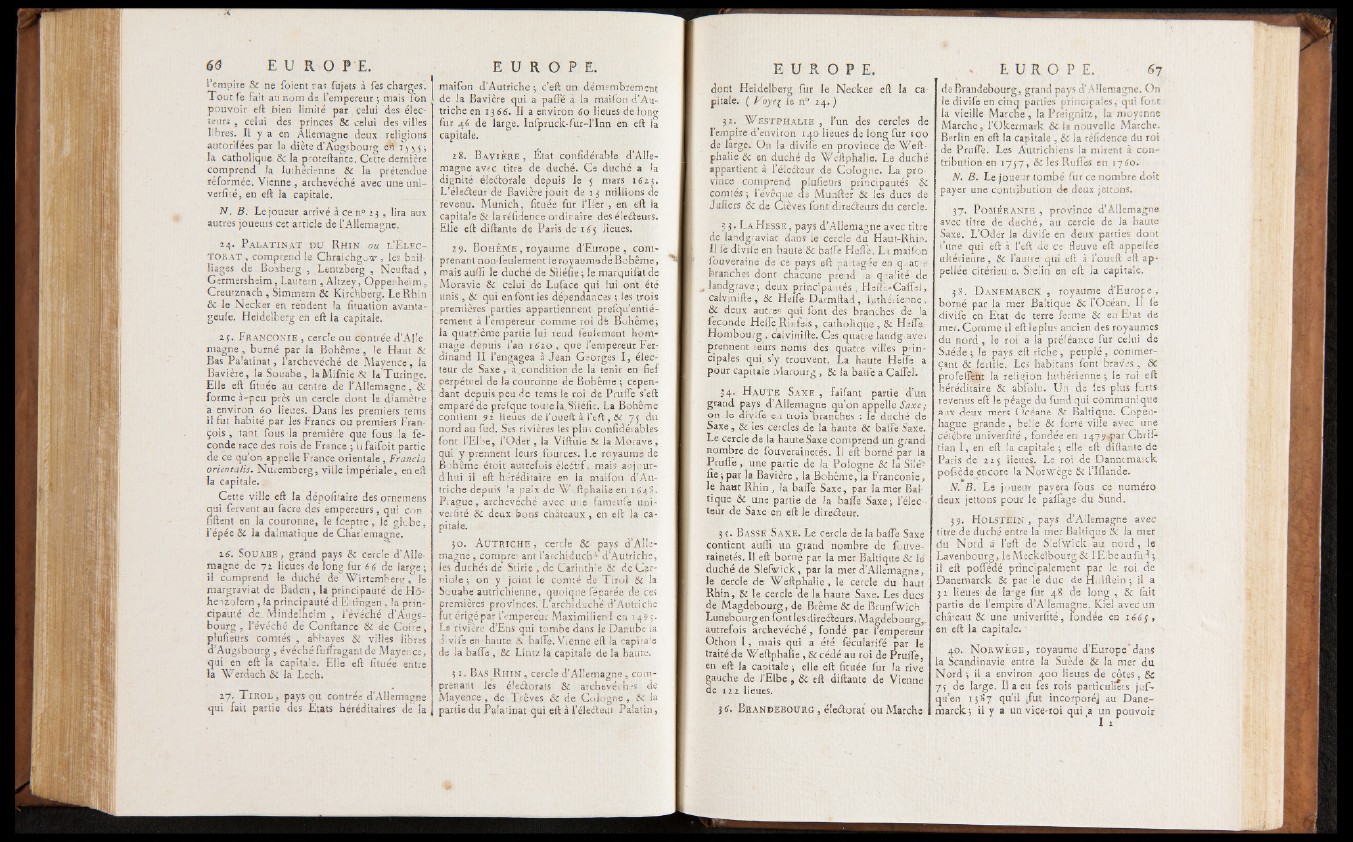 66 EUROPE.
l'empire & ne soient pas sujets à ses charges.
Tout se fait au nom de l'empereur ; mais son
pouvoir est bien limité par celui des élec-
teurs, celui des princes & celui des villes
libres. Il y a en Allemagne deux religions
autorisées par la diète d'Augsbourg en 1555,
la catholique & la protestante. Cette dernière
comprend la luthérienne & la prétendue
réformée. Vienne, archevéché avec une uni-
versité, en est la capitale.
N. B. Le joueur arrivé à ce nº 23, lira aux
autres joueurs cet article de l'Allemagne.
24. PALATINAT DU RHIN ou L'ÉLEC-
TORAT, comprend le Chraichgow, les bail-
liages de Boxberg, Lentzberg, Neustad,
Germersheim, Lautern, Altzey, Oppenheim,
Creutznach, Simmern & Kirchberg. Le Rhin
& le Necker en rendent la situation avanta-
geuse. Heidelberg en est la capitale.
25. FRANCONIE, cercle ou contrée d'Alle-
magne, borné par la Bohême, le Haut &
Bas Palatinat, l'archevéché de Mayence, la
Bavière, la Souabe, la Misnie & la Turinge.
Elle est située au centre de l'Allemagne, &
forme à-peu près un cercle dont le diamètre
a environ 60 lieues. Dans les premiers tems
il fut habité par les Francs ou premiers Fran-
çois, tant sous la première que sous la se-
conde race des rois de France ; il faisoit partie
de ce qu'on appelle France orientale, Francia
orientalis. Nuremberg, ville impériale, en est
la capitale.
Cette ville est la dépositaire des ornemens
qui servent au sacre des empereurs, qui con-
sistent en la couronne, le sceptre, le globe,
l'épée & la dalmatique de Charlemagne.
26. SOUABE, grand pays & cercle d'Alle-
magne de 72 lieues de long sur 66 de large ;
il comprend le duché de Wirtemberg, le
margraviat de Baden, la principauté de Hô-
henzolern, la principauté d'Etingen, la prin-
cipauté de Mindelheim, l'évéché d'Augs-
bourg, l'évéché de Constance & de Coire,
plusieurs comtés, abbayes & villes libres
d'Augsbourg, évéché suffragant de Mayence,
qui en est la capitale. Elle est située entre
la Werdach & la Lech.
27. TIROL, pays ou contrée d'Allemagne
qui fait partie des Etats héréditaires de la
EUROPE.
maison d'Autriche ; c'est un démembrement
de la Bavière qui a passé à la maison d'Au-
triche en 1366. Il a environ 60 lieues de long
sur 46 de large. Inspruck-sur-l'Inn en est la
capitale.
28. BAVIÈRE, État considérable d'Alle-
magne avec titre de duché. Ce duché a la
dignité électorale depuis le 5 mars 1623.
L'électeur de Bavière jouit de 15 millions de
revenu. Munich, située sur l'Iser, en est la
capitale & la résidence ordinaire des électeurs.
Elle est distante de Paris de 165 lieues.
29. BOHÊME, royaume d'Europe, com-
prenant non-seulement le royaume de Bohême,
mais aussi le duché de Silésie ; le marquisat de
Moravie & celui de Lusace qui lui ont été
unis, & qui en font les dépendances ; les trois
premières parties appartiennent presqu'entiè-
rement à l'empereur comme roi de Bohême ;
la quatrième partie lui rend seulement hom-
mage depuis l'an 1620, que l'empereur Fer-
dinand II l'engagea à Jean Georges I, élec-
teur de Saxe, à condition de la tenir en fief
perpétuel de la couronne de Bohême ; cepen-
dant depuis peu de tems le roi de Prusse s'est
emparé de presque toute la Silésie. La Bohême
contient 92 lieues de l'ouest à l'est, & 75 du
nord au sud. Ses rivières les plus considérables
sont l'Elbe, l'Oder, la Vistule & la Morave,
qui y prennent leurs sources. Le royaume de
Bohême étoit autrefois électif, mais aujour-
d'hui il est héréditaire en la maison d'Au-
triche depuis la paix de Westphalie en 1648.
Prague, archevéché avec une fameuse uni-
versité & deux bons châteaux, en est la ca-
pitale.
30. AUTRICHE, cercle & pays d'Alle-
magne, comprenant l'archiduché d'Autriche,
les duchés de Stirie, de Carinthie & de Car-
niole ; on y joint le comté de Tirol & la
Souabe autrichienne, quoique séparée de ces
premières provinces. L'archiduché d'Autriche
fut érigé par l'empereur Maximilien I en 1495.
La rivière d'Ens qui tombe dans le Danube la
divise en haute & basse. Vienne est la capitale
de la basse, & Lintz la capitale de la haute.
31. BAS RHIN, cercle d'Allemagne, com-
prenant les électorats & archevéchés de
Mayence, de Trêves & de Cologne, & la
partie du Palatinat qui est à l'électeur Palatin,
EUROPE.
dont Heidelberg sur le Necker est la ca-
pitale. ( Voyez le nº 24. )
32. WESTPHALIE, l'un des cercles de
l'empire d'environ 140 lieues de long sur 100
de large. On la divise en province de West-
phalie & en duché de Westphalie. Le duché
appartient à l'électeur de Cologne. La pro-
vince comprend plusieurs principautés &
comtés ; l'évêque de Munster & les ducs de
Juliers & de Clèves sont directeurs du cercle.
33. LA HESSE, pays d'Allemagne avec titre
de landgraviat dans le cercle du Haut-Rhin.
Il se divise en haute & basse Hesse. La maison
souveraine de ce pays est partagée en quatre
branches dont chacune prend la qualité de
landgrave ; deux principautés, Hesse-Cassel,
calviniste, & Hesse Darmstad, luthérienne,
& deux autres qui sont des branches de la
seconde Hesse Rhinfels, catholique, & Hesse
Hombourg, calviniste. Ces quatre landgraves
prennent leurs noms des quatre villes prin-
cipales qui s'y trouvent. La haute Hesse a
pour capitale Marourg, & la basse a Cassel.
34. HAUTE SAXE, faisant partie d'un
grand pays d'Allemagne qu'on appelle Saxe ;
on le divise en trois branches : le duché de
Saxe, & les cercles de la haute & basse Saxe.
Le cercle de la haute Saxe comprend un grand
nombre de souverainetés. Il est borné par la
Prusse, une partie de la Pologne & la Silé-
sie ; par la Bavière, la Bohême, la Franconie,
le haut Rhin, la basse Saxe, par la mer Bal-
tique & une partie de la basse Saxe ; l'élec-
teur de Saxe en est le directeur.
35. BASSE SAXE. Le cercle de la basse Saxe
contient aussi un grand nombre de souve-
rainetés. Il est borné par la mer Baltique & le
duché de Sleswick, par la mer d'Allemagne,
le cercle de Westphalie, le cercle du haut
Rhin, & le cercle de la haute Saxe. Les ducs
de Magdebourg, de Brême & de Brunswich
Lunebourg en sont les directeurs. Magdebourg,
autrefois archevéché, fondé par l'empereur
Othon I, mais qui a été sécularisé par le
traité de Westphalie, & cédé au roi de Prusse,
en est la capitale ; elle est située sur la rive
gauche de l'Elbe, & est distante de Vienne
de 122 lieues.
36. BRANDEBOURG, électorat ou Marche
EUROPE. 67
de Brandebourg, grand pays d'Allemagne. On
le divise en cinq parties principales, qui sont
la vieille Marche, la Preignitz, la moyenne
Marche, l'Okermark & la nouvelle Marche.
Berlin en est la capitale, & la résidence du roi
de Prusse. Les Autrichiens la mirent à con-
tribution en 1757, & les Russes en 1760.
N. B. Le joueur tombé sur ce nombre doit
payer une contribution de deux jettons.
37. POMÉRANIE, province d'Allemagne
avec titre de duché, au cercle de la haute
Saxe. L'Oder la divise en deux parties dont
l'une qui est à l'est de ce fleuve est appellée
ultérieure, & l'autre qui est à l'ouest est ap-
pellée citérieure. Stetin en est la capitale.
38. DANEMARCK, royaume d'Europe,
borné par la mer Baltique & l'Océan. Il se
divise en Etat de terre ferme & en Etat de
mer. Comme il est le plus ancien des royaumes
du nord, le roi a la préséance sur celui de
Suéde ; le pays est riche, peuplé, commer-
çant & fertile. Les habitans sont braves, &
professent la religion luthérienne ; le roi est
héréditaire & absolu. Un de ses plus forts
revenus est le péage du sund qui communique
aux deux mers Océane & Baltique. Copen-
hague grande, belle & forte ville avec une
célèbre université, fondée en 1479 par Chris-
tian I, en est la capitale ; elle est distante de
Paris de 225 lieues. Le roi de Dannemarck
possède encore la Norwège & l'Islande.
N. B. Le joueur payera sous ce numéro
deux jettons pour le passage du Sund.
39. HOLSTEIN, pays d'Allemagne avec
titre de duché entre la mer Baltique & la mer
du Nord à l'est de Sleswick au nord, le
Lavenbourg, le Meckelbourg & l'Elbe au sud ;
il est possédé principalement par le roi de
Danemarck & par le duc de Holstein ; il a
32 lieues de large sur 48 de long, & fait
partie de l'empire d'Allemagne. Kiel avec un
château & une université, fondée en 1665,
en est la capitale.
40. NORWÈGE, royaume d'Europe dans
la Scandinavie entre la Suède & la mer du
Nord ; il a environ 400 lieues de côtes, &
75 de large. Il a eu ses rois particuliers jus-
qu'en 1387 qu'il fut incorporé au Dane-
marck ; il y a un vice-roi qui a un pouvoir
I 2